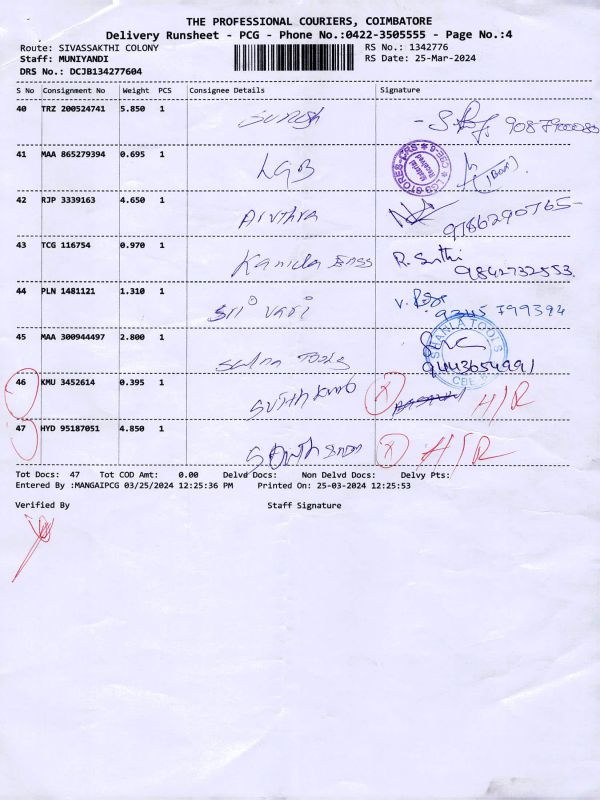 THE PROFESSIONAL COURIERS, COIMBATORE
Delivery Runsheet - PCG - Phone No.:0422-3505555 - Page No.:4
Route: SIVASSAKTHI COLONY RS No.: 1342776
Staff: MUNIYANDI RS Date: 25-Mar-2024
DRS No.: DCJB134277604
S No Consignment No Weight PCS Consignee Details Signature
40 TRZ 200524741 5.850 1 Suresh
41 MAA 865279394 0.695 1 LGB
LGB STORES-DRS * CBE-6 *
Material
Received
42 RJP 3339163 4.650 1 Aruthra 9786290765
43 TCG 116754 0.970 1 Kanicka Engg R. Suthi
9842732553
44 PLN 1481121 1.310 1 Sri Vari
9345 799394
45 MAA 300944497 2.800 1 Tools 9443654991
TOOLS
CBE
46 KMU 3452614 0.395 1 X H/R
47 HYD 95187051 4.850 1 X H/R
Tot Docs: 47 Tot COD Amt: 0.00 Delvd Docs: Non Delvd Docs: Delvy Pts:
Entered By :MANGAIPCG 03/25/2024 12:25:36 PM Printed On: 25-03-2024 12:25:53
Verified By Staff Signature